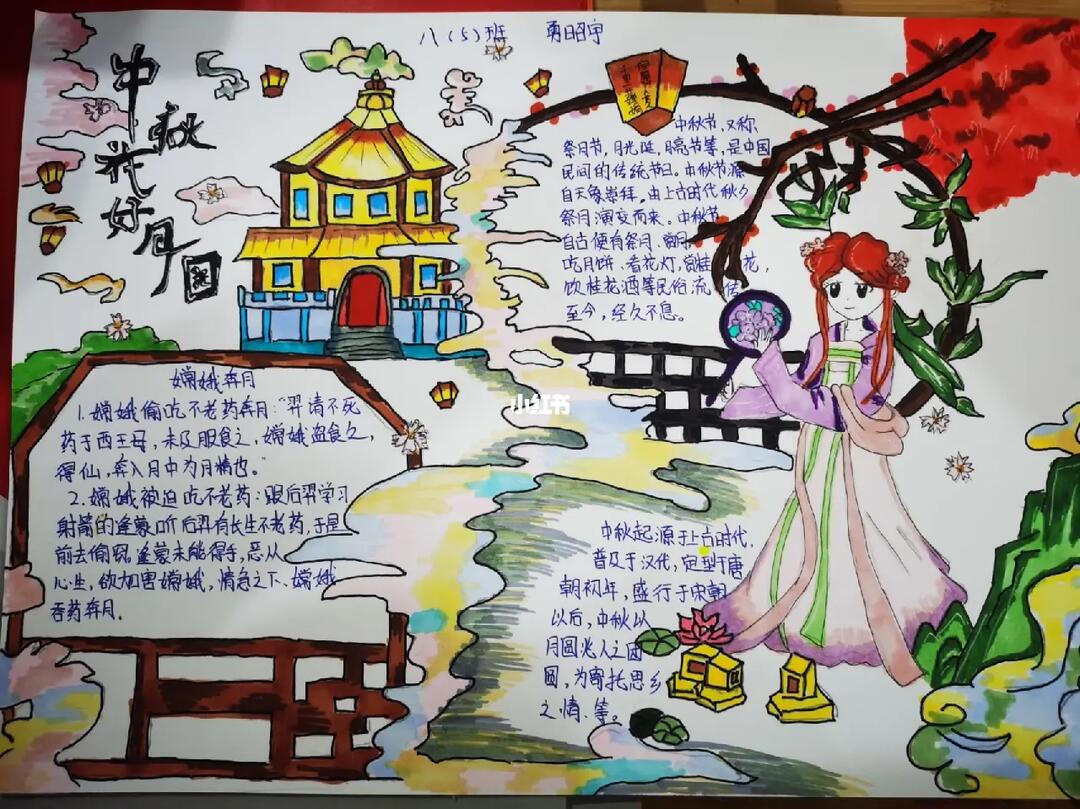 八（5）班
中秋
花好月圆
中秋节,又称
祭月节,月光诞,月亮节等,是中国
民间的传统节日。中秋节源
自天象崇拜,由上古时代秋夕
祭月演变而来。中秋节
自古便有祭月、赏月
吃月饼、看花灯,赏桂花,
饮桂花酒等民俗,流传
至今,经久不息。
嫦娥奔月
1.嫦娥偷吃不老药奔月:“羿请不死
药于西王母,未及服食之,嫦娥盗食之,
得仙,奔入月中为月精也。”
2.嫦娥被迫吃不老药:跟后羿学习
射箭的逢蒙,听后羿有长生不老药,于是
前去偷窃。逢蒙未能得手,恶从
心生,欲加害嫦娥,情急之下、嫦娥
吞药奔月.
小红书
中秋起源于上古时代,
普及于汉代,定型于唐
朝初年,盛行于宋朝
以后,中秋以
月圆兆人之团
圆,为寄托思乡
之情.等。